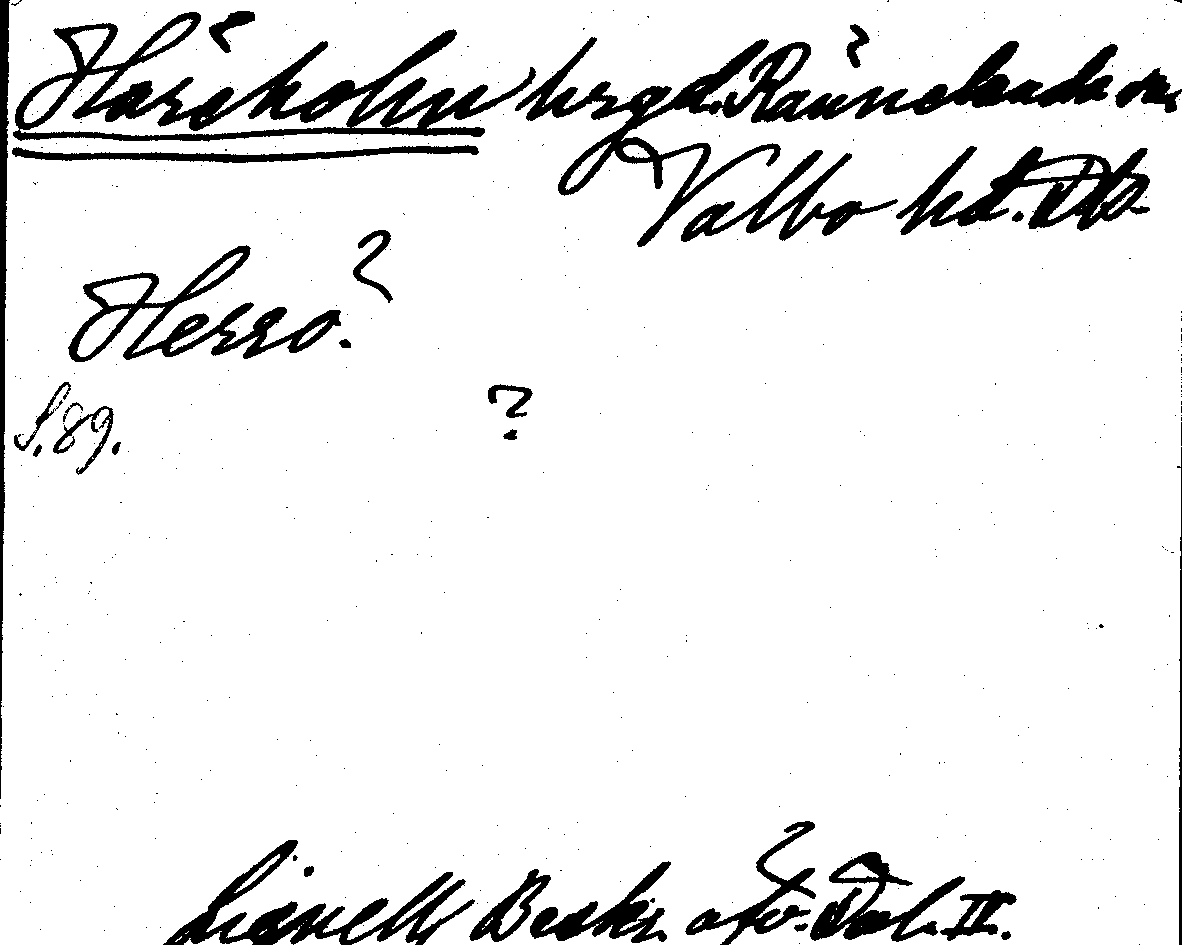 Håreholm hrgd. Rännelanda sn
Valbo hd. Dls.
Herro.
S. 89. ?
Lignell Beskr. öfv. Dal. II.